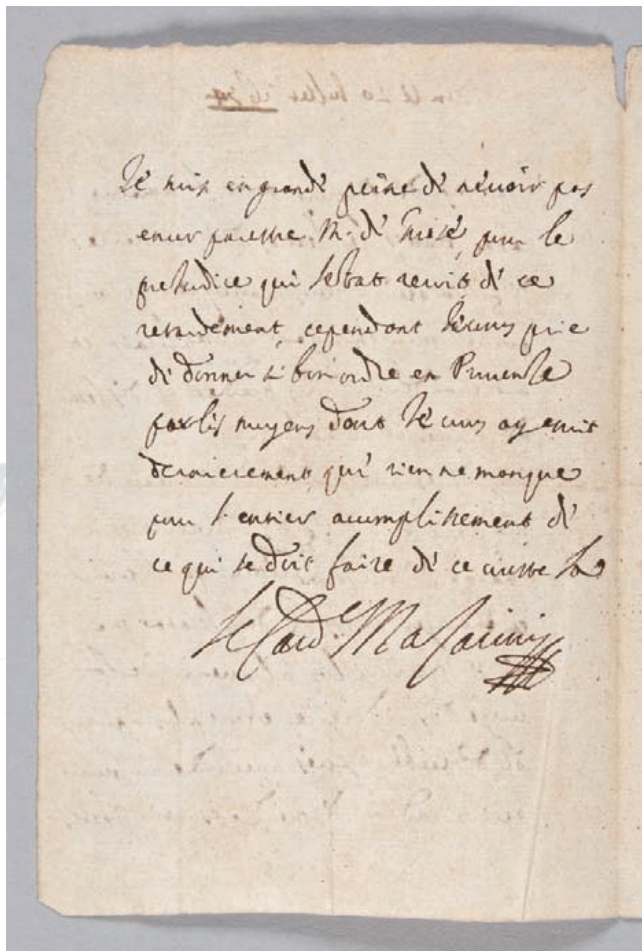 Ié suis en grandé peine dé n'auoir pas
encor M. dé pour le
preiudice qui dé ce
retardement, cependant Ié uous prie
dé donner si bon ordre en Prouence
par lis moyens dont Ié uous ay escrit
dernierement, qué rien ne manque
pour l'entier acumplissement dé
ce qui se doit faire dé ce costé là
Le Card.le Mazarini